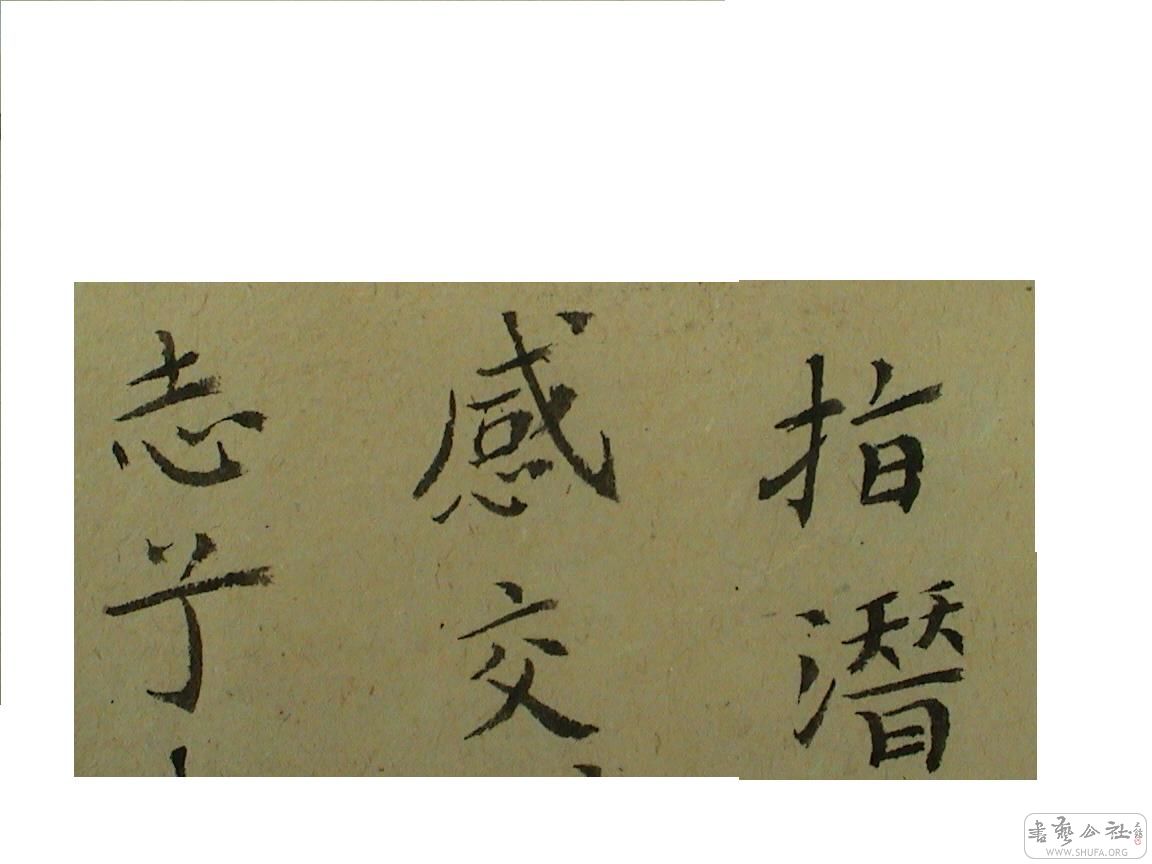 指潛
感交
志兮
書藝公社
WWW.SHUFA.ORG